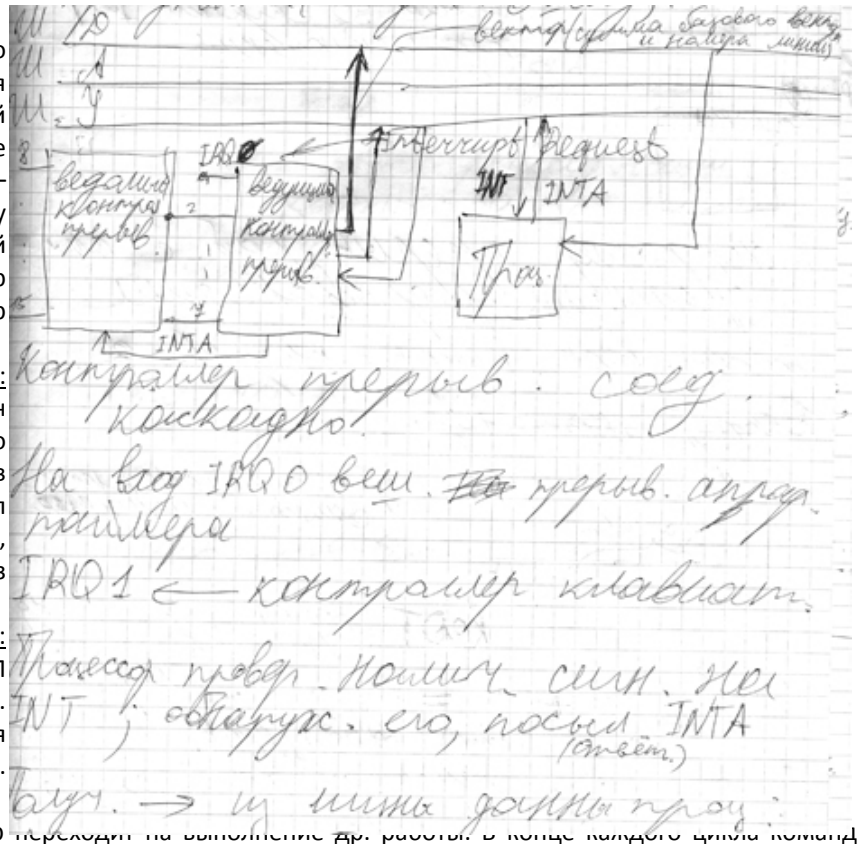 Ш Д
вектор (сумма базового вект.
и номера линии)
Ш А
Ш У
IRQ0
Interrupt Request
8
ведомый
контрол.
прерыв.
2
ведущий
контролл.
прерыв.
INT
INTA
Проц.
15
7
INTA
Контроллер прерыв. соед.
каскадно.
На вход IRQ0 веш. прерыв. аппар.
таймера
IRQ1 ← контроллер клавиат.
Процессор провер. налич. сигн. на
INT; обнаруж. его, посыл INTA
(ответ.)
Получ. → из шины данны проц.
переходит на выполнение др. работы. В конце каждого цикла команд